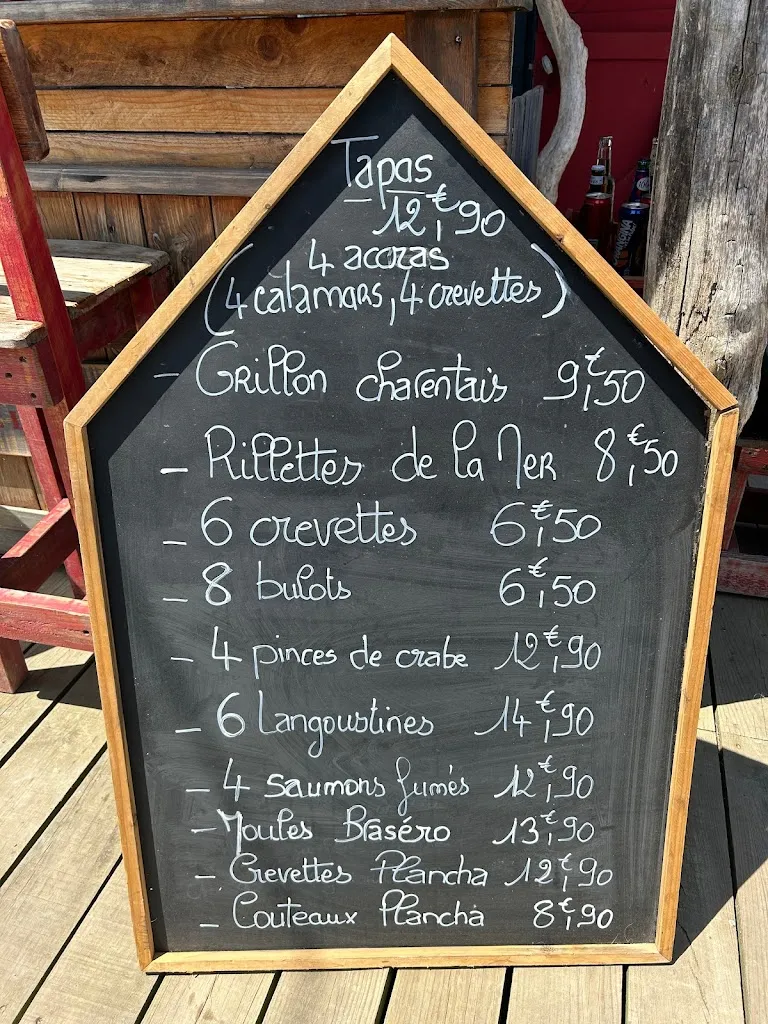 Tapas
12€,90
4 accras
(4 calamars, 4 crevettes)
- Grillon charentais 9€,50
- Rillettes de la Mer 8€,50
- 6 crevettes 6€,50
- 8 bulots 6€,50
- 4 pinces de crabe 12€,90
- 6 Langoustines 14€,90
- 4 saumons fumés 12€,90
- Moules Braséro 13€,90
- Crevettes Plancha 12€,90
- Couteaux Plancha 8€,90